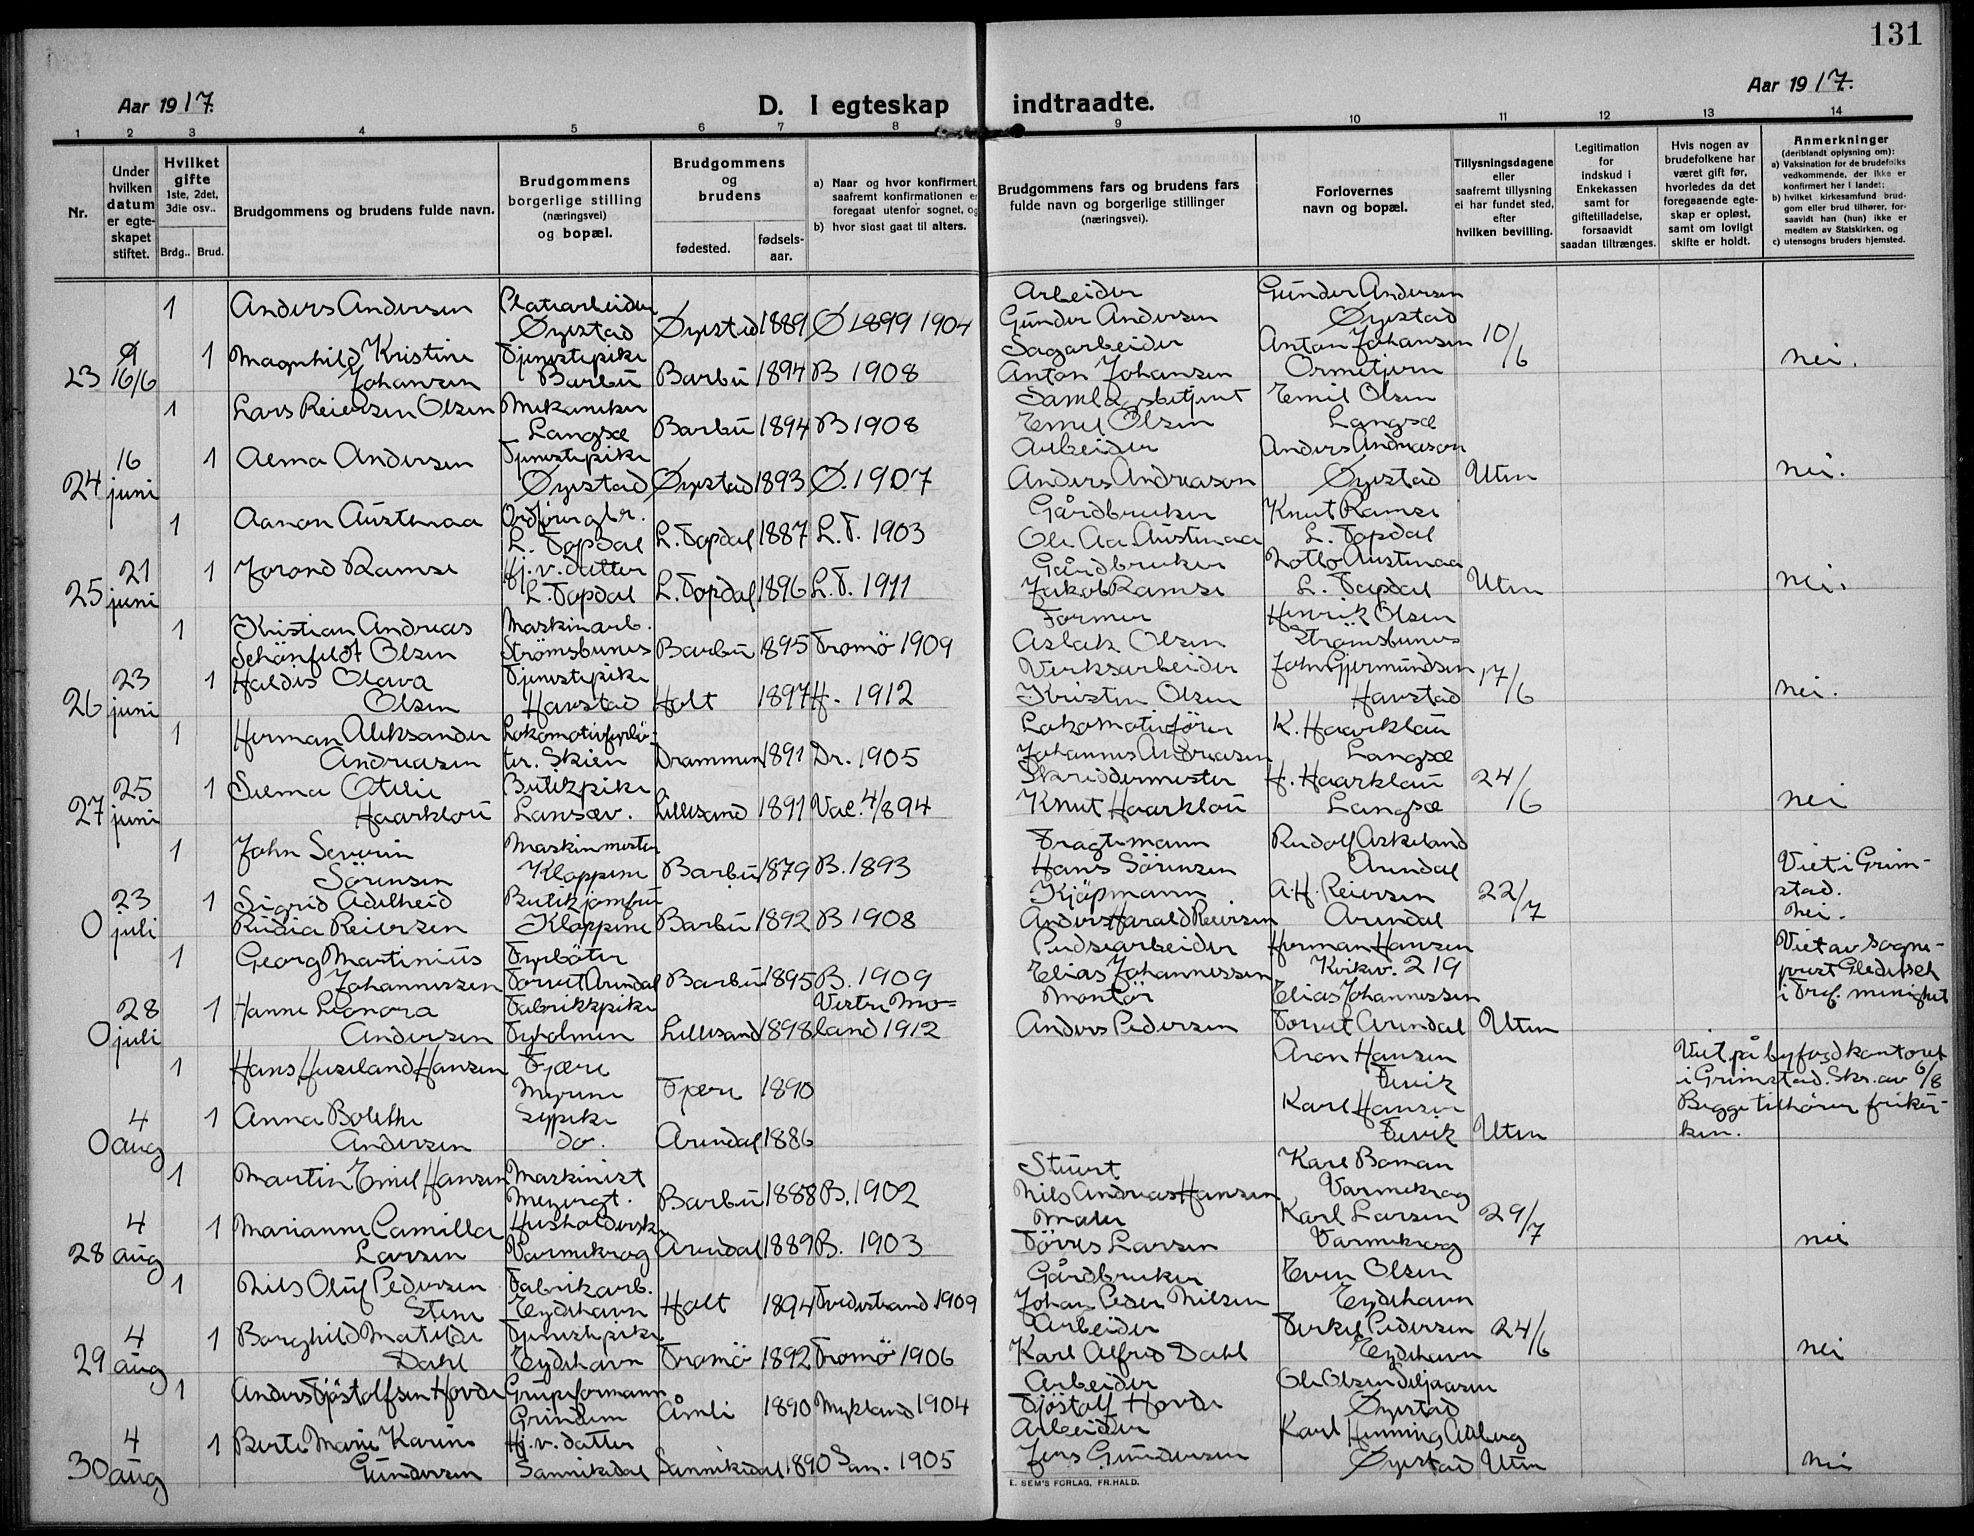 131
Aar 1917.
D. I egteskap indtraadte.
Aar 1917.
1 2 3 4 5 6 7 8 9 10 11 12 13 14
Nr.
Under hvilken datum er egteskapet stiftet.
Hvilket gifte 1ste, 2det, 3die osv..
Brdg.. Brud.
Brudgommens og brudens fulde navn.
Brudgommens borgerlige stilling (næringsvei) og bopæl.
Brudgommens og brudens
fødested.
fødsels-aar.
a) Naar og hvor konfirmert, saafremt konfirmationen er foregaat utenfor sognet, og
b) hvor sidst gaat til alters.
Brudgommens fars og brudens fars fulde navn og borgerlige stillinger (næringsvei).
Forlovernes navn og bopæl.
Tillysningsdagene eller saafremt tillysning ei har fundet sted, efter hvilken bevilling.
Legitimation for indskud i Enkekassen samt for giftetilladelse, forsaavidt saadan tiltrænges.
Hvis nogen av brudefolkene har været gift før, hvorledes da det foregaaende egteskap er opløst, samt om lovligt skifte er holdt.
Anmerkninger (deriblandt oplysning om):
a) Vaksination for de brudefolks vedkommende, der ikke er konfirmert her i landet;
b) hvilket kirkesamfund brudgom eller brud tilhører, forsaavidt han (hun) ikke er medlem av Statskirken, og
c) utensogns bruders hjemsted.
1 Anders Andersen Platearbeider Øyestad Øyestad 1889 Ø 1899 1904 Arbeider Gunder Andersen Gunder Andersen Øyestad
23 16/6 1 Magnhild Kristine Johansen Tjenestepike Barbu Barbu 1894 B 1908 Sagarbeider Anton Johansen Anton Johansen Ormetjern 10/6 nei.
1 Lars Reiersen Olsen Mekaniker Langsæ Barbu 1894 B 1908 Samlagsbetjent Emil Olsen Emil Olsen Langsæ
24 16 juni 1 Alma Andersen Tjenestepike Øyestad Øyestad 1893 Ø. 1907 Arbeider Anders Andreason Anders Andreason Øyestad Uten nei.
1 Aanon Austenaa Ordfør gbr. L. Topdal L. Topdal 1887 L.T. 1903 Gårdbruker Ole Aa. Austenaa Knut Ramse L. Topdal
25 21 juni 1 Jorond Ramse Hj.v. datter L. Topdal L. Topdal 1896 L.T. 1911 Gårdbruker Jakob Ramse Lotto Austenaa L. Topdal Uten nei.
1 Kristian Andreas Schønfeldt Olsen Maskinarb. Strømsbunes Barbu 1895 Tromø 1909 Former Aslak Olsen Henrik Olsen Strømsbunes
26 23 juni 1 Haldis Olava Olsen Tjenestepike Havstad Holt 1897 H. 1912 Verksarbeider Kristen Olsen John Gjermundsen Havstad 17/6 nei.
1 Herman Aleksander Andreasen Lokomotivfyrbøter. Skien Drammen 1891 Dr. 1905 Lokomotivfører Johannes Andreasen K. Haarklou Langsæ
27 25 juni 1 Selma Otelie Haarklou Butikpike Langsæv. Lillesand 1891 Val. 4/894 Skreddermester Knut Haarklou H. Haarklou Langsæ 24/6 nei
1 John Severin Sørensen Maskinmester Kloppene Barbu 1879 B. 1893 Fragtemann Hans Sørensen Rudolf Askeland Arendal Viet i Grimstad.
0 23 juli 1 Sigrid Adelheid Rudia Reiersen Butikjomfru Kloppene Barbu 1892 B 1908 Kjøpmann Anders Harald Reiersen A.H. Reiersen Arendal 22/7 nei.
1 Georg Martinius Johannessen Fyrbøter Torvet Arendal Barbu 1895 B. 1909 Pudsearbeider Elias Johannessen Herman Hansen Kvikv. 219 Viet av sogneprest Gleditsch i Tref. menighet
0 28 juli 1 Hanne Leonora Andersen Fabrikkpike Tyholmen Lillesand 1898 Vestre Moland 1912 Montør Anders Pedersen Elias Johannessen Torvet Arendal Uten
1 Hans Huseland Hansen Fjære Myrene Fjære 1890 Aron Hansen Fevik Viet på byfogdkontoret i Grimstad. Skr. av 6/8
0 4 aug 1 Anna Bolethe Andersen Sypike do. Arendal 1886 Karl Hansen Fevik Uten Begge tilhører frikirken.
1 Martin Emil Hansen Maskinist Meyergt. Barbu 1888 B. 1902 Stuert Nils Andreas Hansen Karl Boman Varmekrog
28 4 aug 1 Marianne Camilla Larsen Husholdersk. Varmekrog Arendal 1889 B. 1903 Maler Tørres Larsen Karl Larsen Varmekrog 29/7 nei
1 Nils Oluf Pedersen Stene Fabrikarb. Eydehavn Holt 1894 Tvedestrand 1909 Gårdbruker Johan Peder Nilsen Even Olsen Eydehavn
29 4 aug 1 Borghild Matilde Dahl Tjenestepike Eydehavn Tromø 1892 Tromø 1906 Arbeider Karl Alfred Dahl Terkel Pedersen Eydehavn 24/6 nei
1 Anders Tjøstolfsen Hovde Grupeformann Grindem Åmli 1890 Mykland 1904 Arbeider Tjøstolf Hovde Ole Olsen Øyestad
30 4 aug 1 Berte Marie Karine Gundersen Hj.v. datter Sannikedal Sannikedal 1890 San. 1905 Arbeider Jens Gundersen Karl Henning Øyestad Uten nei
E. SEM'S FORLAG, FR.HALD.